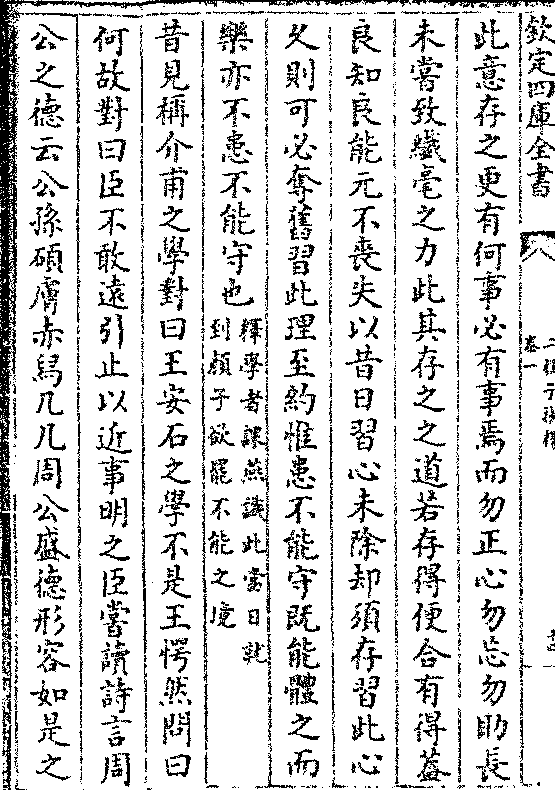 欽定四庫全書
卷一
此意存之更有何事必有事焉而勿正心勿忘勿助長
未嘗致纎毫之力此其存之之道若存得便合有得蓋
良知良能元不喪失以昔日習心未除却須存習此心
乆則可必奪舊習此理至約惟患不能守既能體之而
樂亦不患不能守也
釋學者識此當日就
到顔子欲罷不能之境
昔見稱介甫之學對曰王安石之學不是王愕然問曰
何故對曰臣不敢遠引止以近事明之臣嘗讀詩言周
公之德云公孫碩膚赤舄几几周公盛德形容如是之